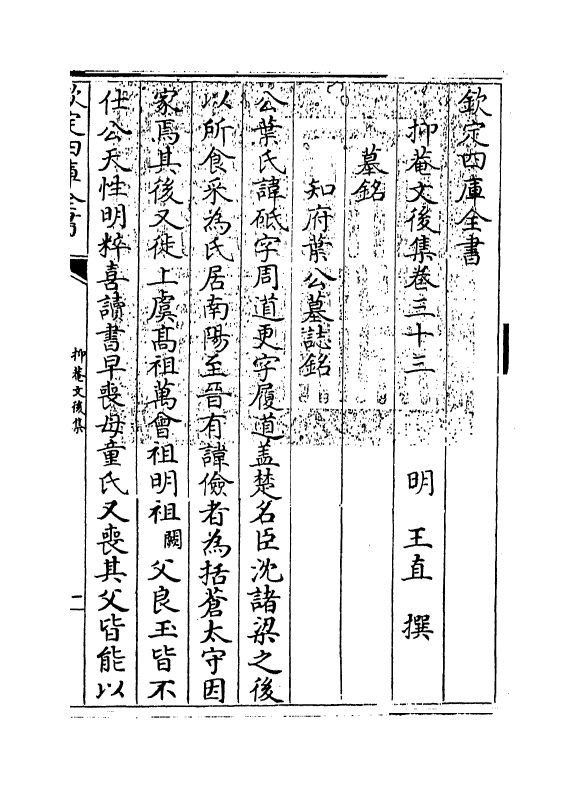 欽定四庫全書
抑菴文後集卷三十三
明 王直 撰
墓銘
知府葉公墓誌銘
公葉氏諱砥字周道更字履道盖楚名臣沈諸梁之後
以所食采為氏居南陽至晉有諱儉者為括蒼太守因
家焉其後又徙上虞髙祖萬曾祖明祖闕父良玉皆不
仕公天性明粹喜讀書早喪母童氏又喪其父皆能以
欽定四庫全書
抑菴文後集